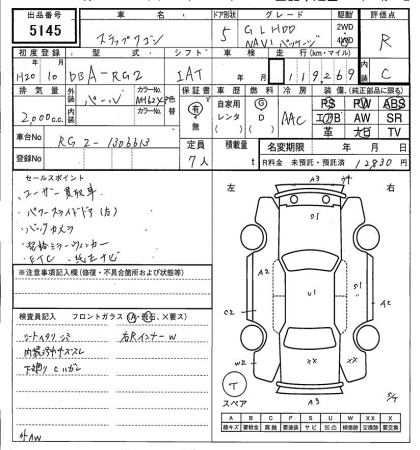 出品番号 車名 ドア形状 グレード 駆動 評価点
5145 ステップワゴン 5 G L HDD NAVI パッケージ 2WD 4WD R
初度登録 型式 シフト 車検 走行(km・マイル) 内装
H20年 10月 DBA-RG2 IAT 年 月 119,269 C
排気量 外装 カラーNo. 色替 保証書 車歴 燃料 冷房 装備 (純正部品に限る)
2,000c.c. パール NH624P 有 無 自家用 レンタ G D AAC PS PW ABS
エアB AW SR
革 ナビ TV
内装 カラーNo.
車台No RG2-1306613 定員 積載量 名変期限 年 月 日
登録No 7人 t R料金 未預託・預託済 12830円
セールスポイント
・ユーザー買取車
・パワースライドドア(左)
・バックカメラ
・ドアミラーウィンカー
・ETC 純正ナビ
※注意事項記入欄(修復・不具合箇所および状態等)
検査員記入 フロントガラス (A・飛石、X要ス)
シートスリ シミ 右Rインナー W
内装 キズスレ
下廻り C ルガレ
左 右
A3
U1
A2
C2
W2
U1
A2
XX
XX
A3
T
スペア
A B C P S U W X XX
線キズ 要板金 腐蝕 要塗装 サビ 凹凸 補修跡 要交換 交換済